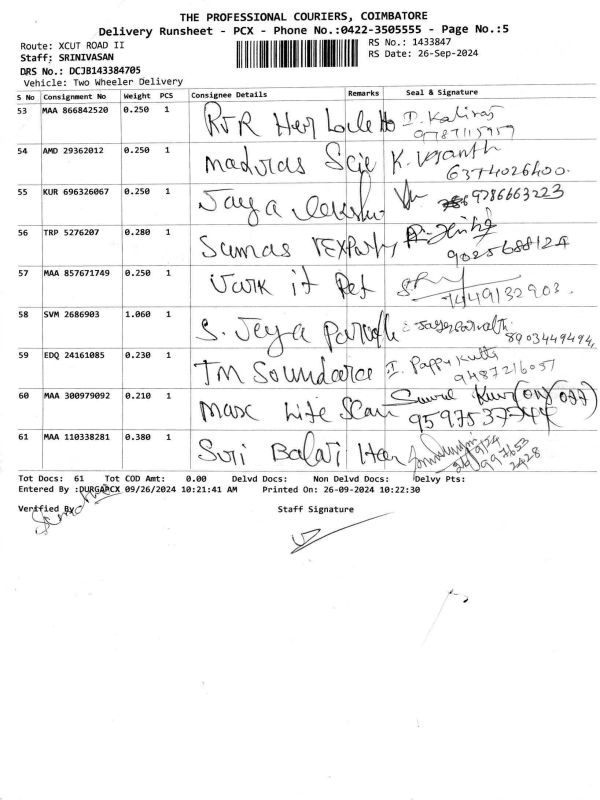 THE PROFESSIONAL COURIERS, COIMBATORE
Delivery Runsheet - PCX - Phone No.:0422-3505555 - Page No.:5
Route: XCUT ROAD II
RS No.: 1433847
Staff: SRINIVASAN
RS Date: 26-Sep-2024
DRS No.: DCJB143384705
Vehicle: Two Wheeler Delivery
S No Consignment No Weight PCS Consignee Details Remarks Seal & Signature
53 MAA 866842520 0.250 1 RJR
9787115959
54 AMD 29362012 0.250 1 Madras Scie K. Vasanth
6374026400
55 KUR 696326067 0.250 1 Jaya
9786663223
56 TRP 5276207 0.280 1 Sumas
9025688124
57 MAA 857671749 0.250 1 Vark it Pet
9449132903
58 SVM 2686903 1.060 1 S. Jeya
8903449494
59 EDQ 24161085 0.230 1 TM Soundara I. Pappu Kutti
9487216057
60 MAA 300979092 0.210 1 Max Life Scan
61 MAA 110338281 0.380 1 Sri Balaji
26/9/24
Tot Docs: 61 Tot COD Amt: 0.00 Delvd Docs: Non Delvd Docs: Delvy Pts:
Entered By :DURGAPCX 09/26/2024 10:21:41 AM Printed On: 26-09-2024 10:22:30
Verified By
Staff Signature